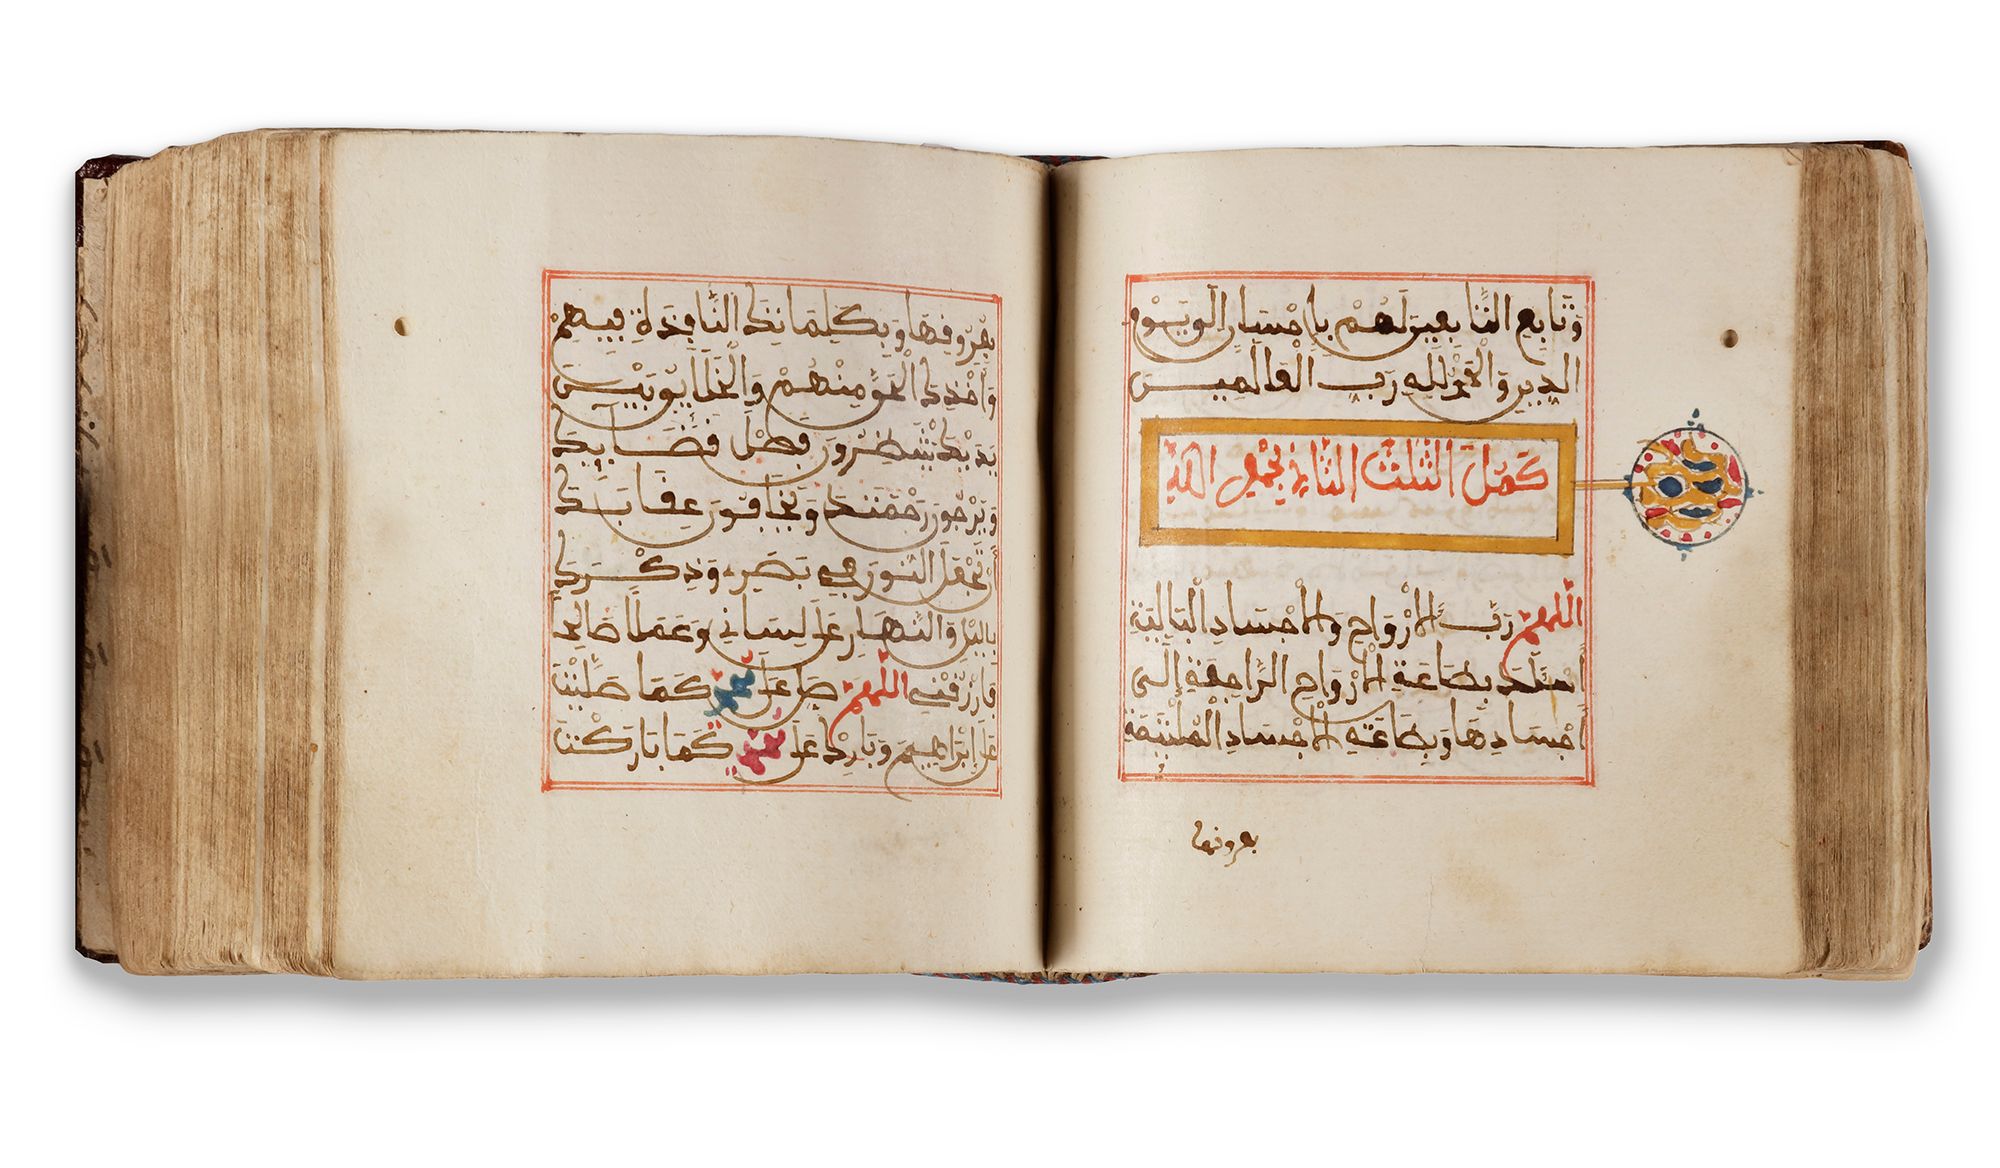 وَتَابِعِ التَّابِعِينَ لَهُمْ بِإِحْسَانٍ إِلَى يَوْمِ
الدِّينِ وَالْحَمْدُ لِلهِ رَبِّ الْعَالَمِينَ
كَمُلَ الثُّلُثُ الثَّانِي بِحَمْدِ اللهِ
اللَّهُمَّ رَبَّ الْأَرْوَاحِ وَالْأَجْسَادِ الْبَالِيَةِ
أَسْئَلُكَ بِطَاعَةِ الْأَرْوَاحِ الرَّاجِعَةِ إِلَى
أَجْسَادِهَا وَبِطَاعَةِ الْأَجْسَادِ الْمُلْتَئِمَةِ
بعروقها
بِعُرُوقِهَا وَبِكَلِمَاتِكَ النَّافِذَةِ فِيهِمْ
وَأَخْذِكَ الْحَقَّ مِنْهُمْ وَالْخَلَائِقُ بَيْنَ
يَدَيْكَ يَنْتَظِرُونَ فَصْلَ قَضَائِكَ
وَيَرْجُونَ رَحْمَتَكَ وَيَخَافُونَ عِقَابَكَ
أَنْ تَجْعَلَ النُّورَ فِي بَصَرِي وَذِكْرَكَ
بِاللَّيْلِ وَالنَّهَارِ عَلَى لِسَانِي وَعَمَلًا صَالِحًا
فَارْزُقْنِي اللَّهُمَّ صَلِّ عَلَى مُحَمَّدٍ كَمَا صَلَّيْتَ
عَلَى إِبْرَاهِيمَ وَبَارِكْ عَلَى مُحَمَّدٍ كَمَا بَارَكْتَ